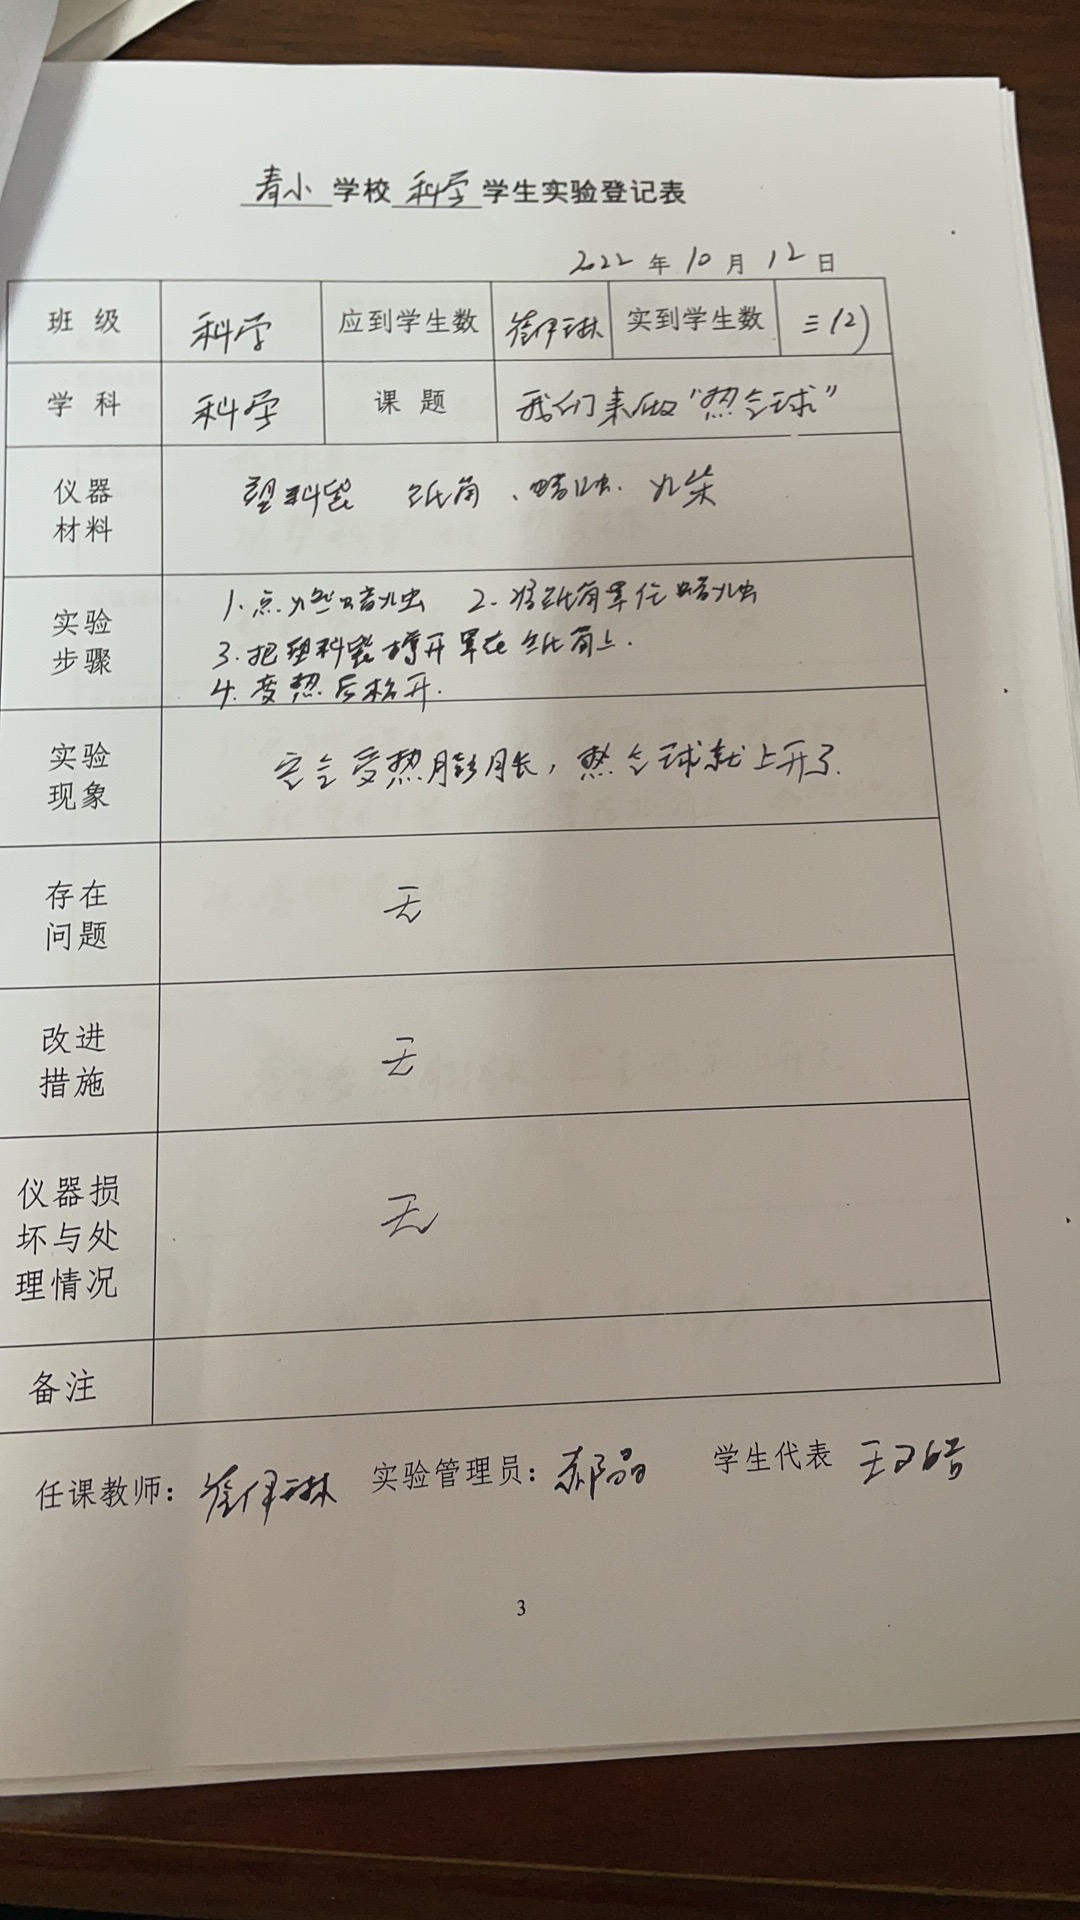 青小 学校 科学 学生实验登记表
2022 年 10 月 12 日
班 级 科学 应到学生数 伊琳 实到学生数 三(2)
学 科 科学 课 题 我们来做“热气球”
仪器
材料
塑料袋 纸筒、蜡烛. 火柴
实验
步骤
1. 点燃蜡烛 2. 将纸筒罩住蜡烛
3. 把塑料袋撑开罩在纸筒上.
4. 变热后松开.
实验
现象
空气受热膨胀, 热气球就上升了.
存在
问题
无
改进
措施
无
仪器损
坏与处
理情况
无
备注
任课教师: 伊琳 实验管理员: 郝晶 学生代表 王
3